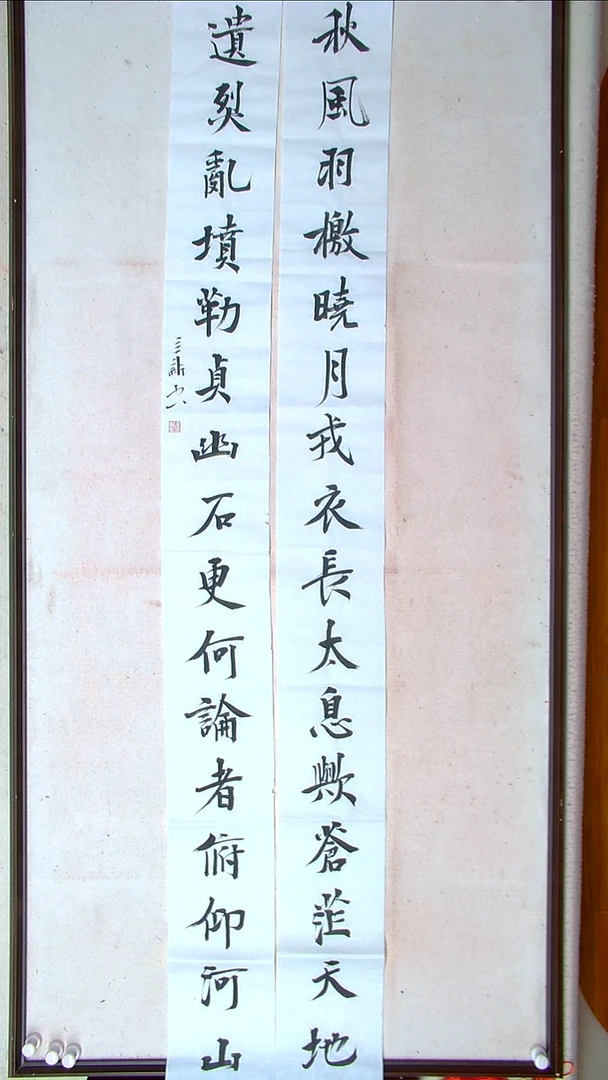 秋風羽檄曉月戎衣長太息歟蒼茫天地
遺烈亂墳勒貞幽石更何論者俯仰河山